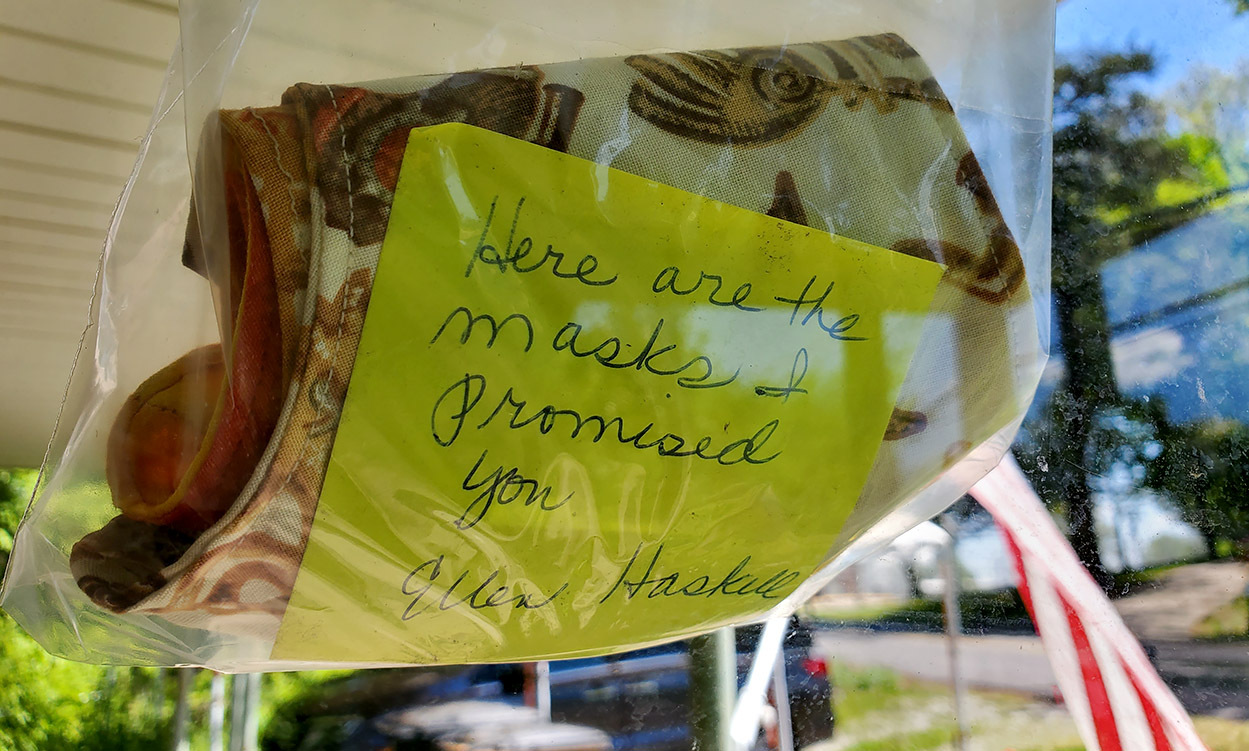 Here are the
masks I
Promised
you
Ellen Haskell